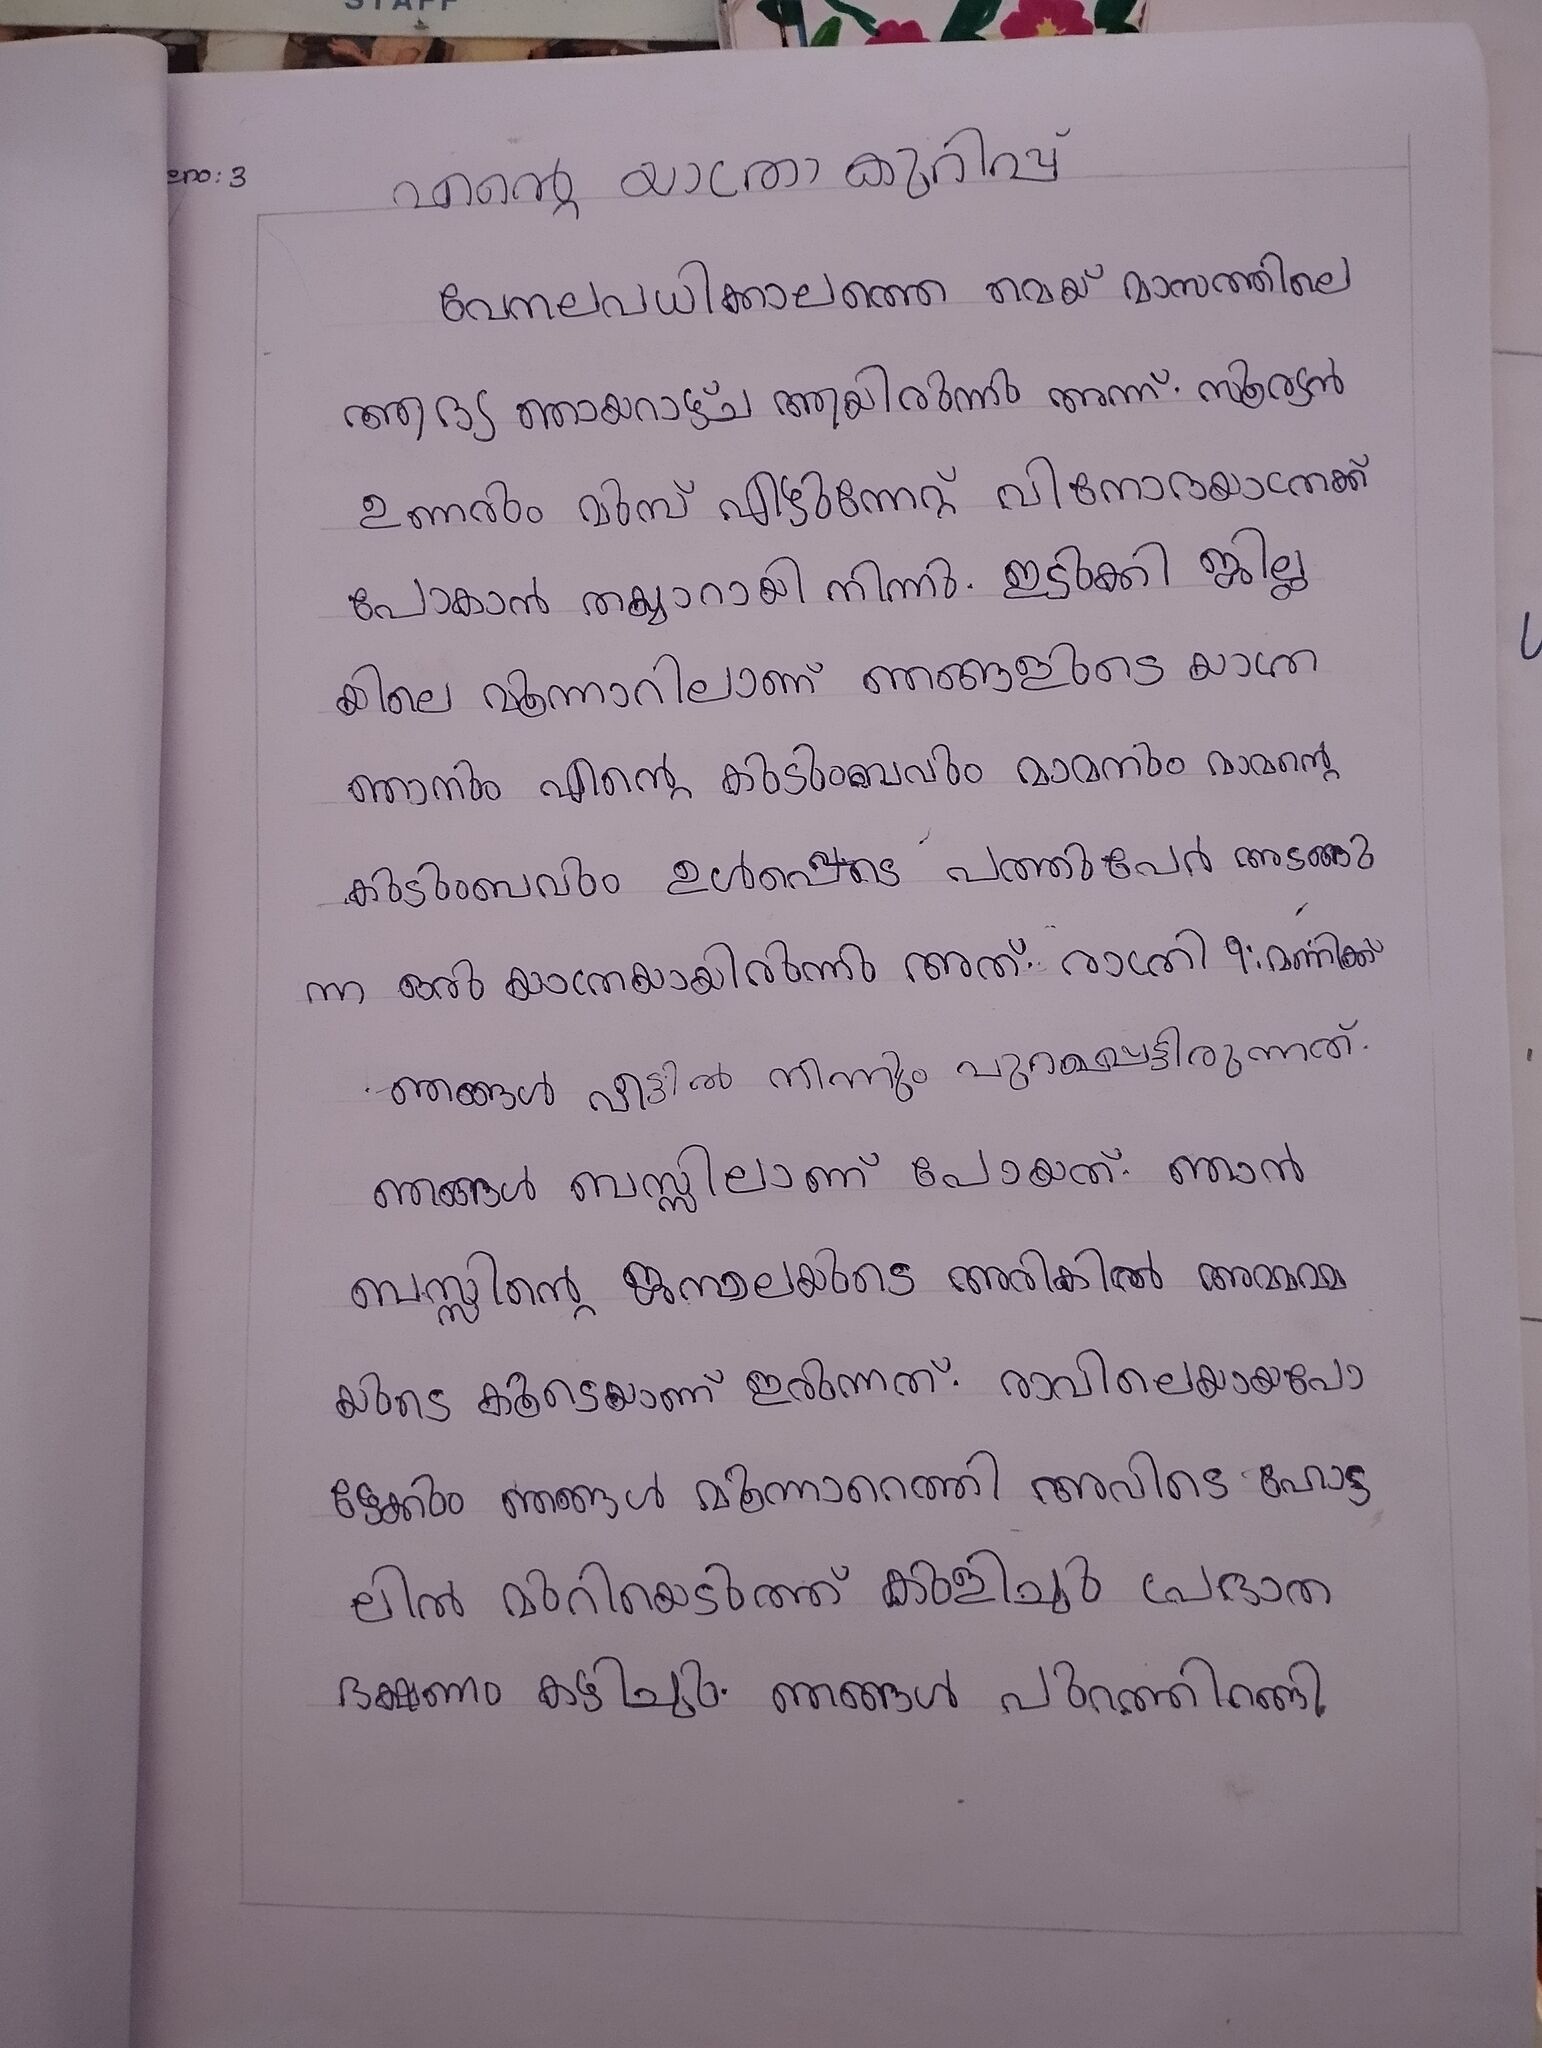 STAFF
eno: 3
എന്റെ യാത്രാ കുറിപ്പ്
വേനലവധിക്കാലത്തെ മെയ് മാസത്തിലെ
ആദ്യ ഞായറാഴ്ച ആയിരുന്നു അന്ന്. സൂര്യൻ
ഉണരും മുമ്പ് എഴുന്നേറ്റ് വിനോദയാത്രക്ക്
പോകാൻ തയ്യാറായി നിന്നു. ഇടുക്കി ജില്ല
യിലെ മൂന്നാറിലാണ് ഞങ്ങളുടെ യാത്ര
ഞാനും എന്റെ കുടുംബവും മാമനും മാമന്റെ
കുടുംബവും ഉൾപ്പെടെ പത്തുപേർ അടങ്ങു
ന്ന ഒരു യാത്രയായിരുന്നു അത്. രാത്രി 9:മണിക്ക്
ഞങ്ങൾ വീട്ടിൽ നിന്നും പുറപ്പെട്ടിരുന്നത്.
ഞങ്ങൾ ബസ്സിലാണ് പോയത്. ഞാൻ
ബസ്സിന്റെ ജനാലയുടെ അരികിൽ അമ്മമ്മ
യുടെ കൂടെയാണ് ഇരുന്നത്. രാവിലെയായപോ
ഴേക്കും ഞങ്ങൾ മൂന്നാറെത്തി അവിടെ ഹോട്ട
ലിൽ മുറിയെടുത്ത് കുളിച്ചു പ്രഭാത
ഭക്ഷണം കഴിച്ചു. ഞങ്ങൾ പുറത്തിറങ്ങി